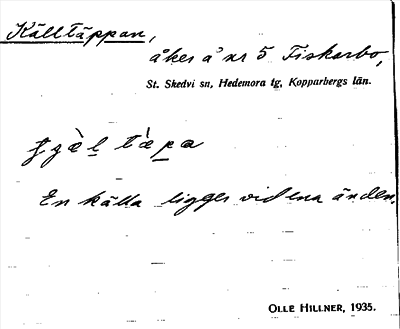 Källtäppan,
åker å nr 5 Fiskarbo,
St. Skedvi sn, Hedemora tg, Kopparbergs län.
tàpa
En källa ligger vid ena änden.
OLLE HILLNER, 1935.